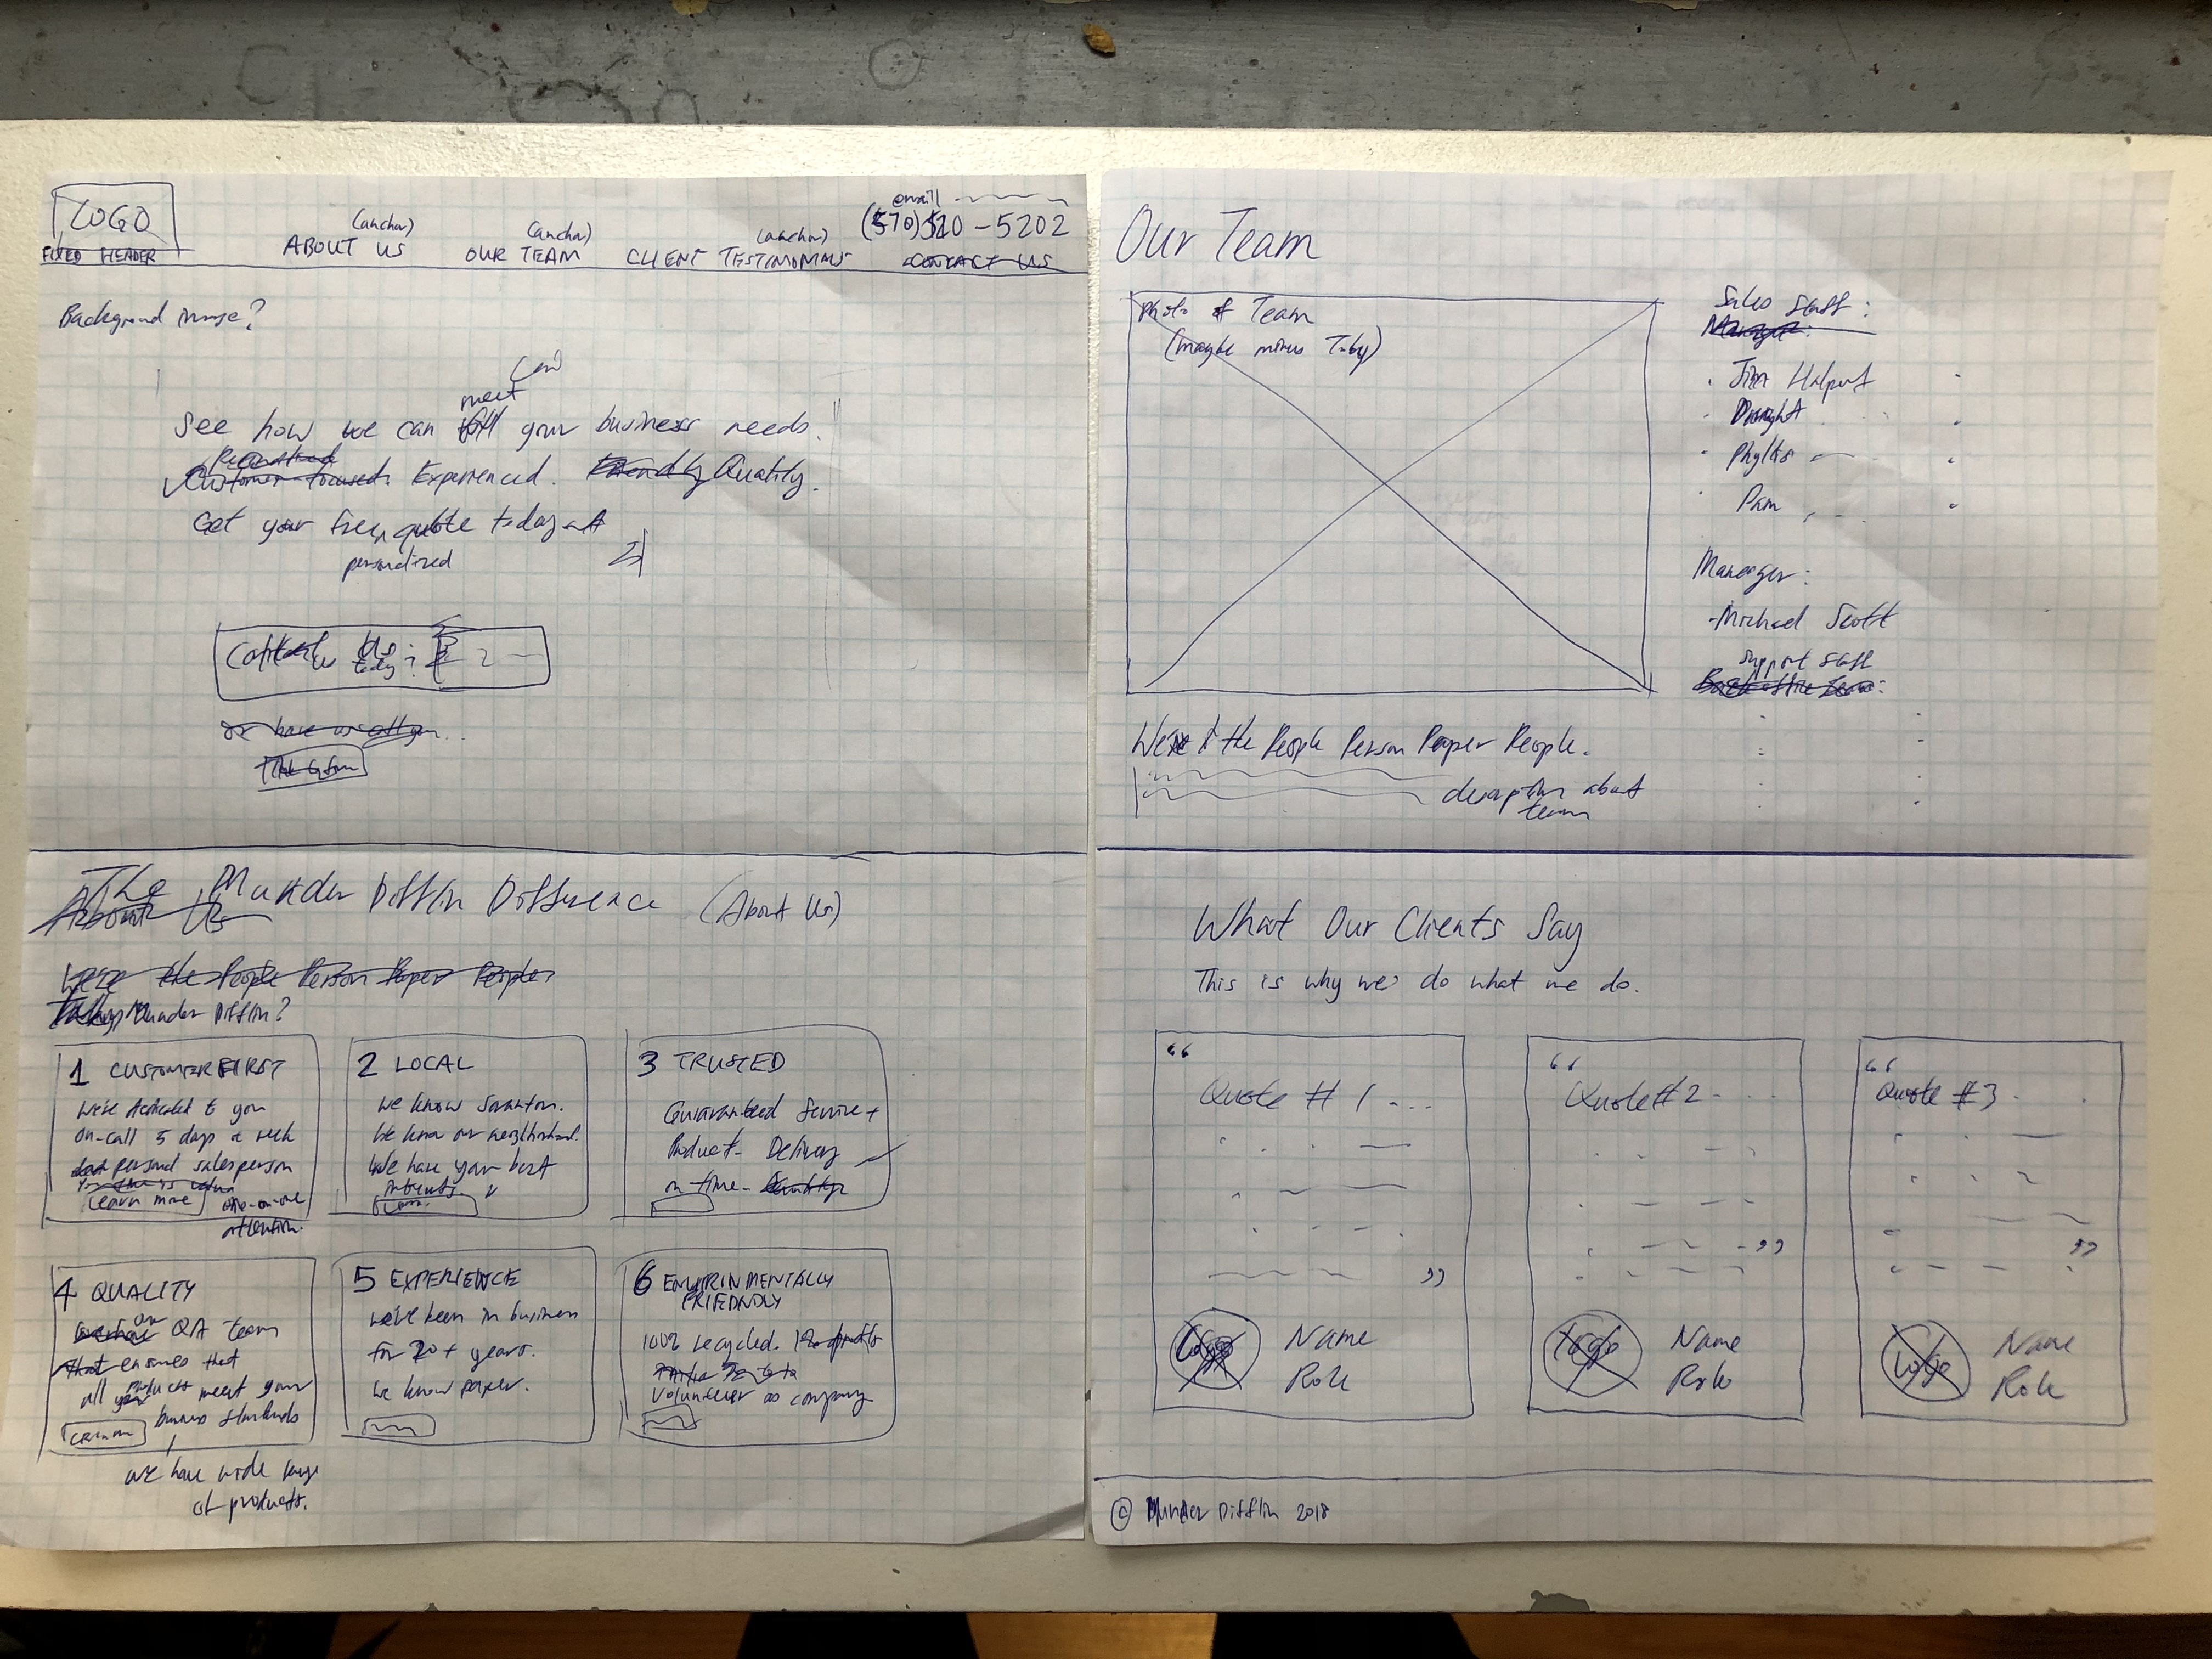 LOGO
FIXED HEADER
(anchor)
ABOUT US
(anchor)
OUR TEAM
(anchor)
CLIENT TESTIMONIALS
email
(570) 520-5202
CONTACT US
Background image?
meet
See how we can fill your business needs.
Customer-focused. Experienced. Friendly Quality.
Get your free quote today at
personalized
Us:
today
The Munder Difflin Difference (About Us)
About Us
We're the People Person Paper People.
Munder Difflin?
1 CUSTOMER FIRST
We're dedicated to you
on-call 5 days a week
personal salesperson
Learn more
one-on-one
attention.
2 LOCAL
We know Scranton.
We know our neighborhood.
We have your best
interests.
3 TRUSTED
Guaranteed Service +
Product - Delivery
on-time -
4 QUALITY
our
QA team
that ensures that
products
all your meet your
business standards
we have wide range
of products.
5 EXPERIENCE
we've been in business
for 20+ years.
We know paper.
6 ENVIRINMENTALLY
FRIEDNLY
100% recycled. 1% profits
Volunteer as company
Our Team
Photo of Team
(maybe minus Toby)
Sales Staff:
Manager:
· Jim Halpert
· Dwight
· Phyllis
· Pam
Manager:
· Michael Scott
Support Staff
We're the People Person Paper People.
description about
team
What Our Clients Say
This is why we do what we do.
“
Quote #1 ...
”
Logo
Name
Role
“
Quote #2
”
Logo
Name
Role
“
Quote #3
”
Logo
Name
Role
© Munder Difflin 2018